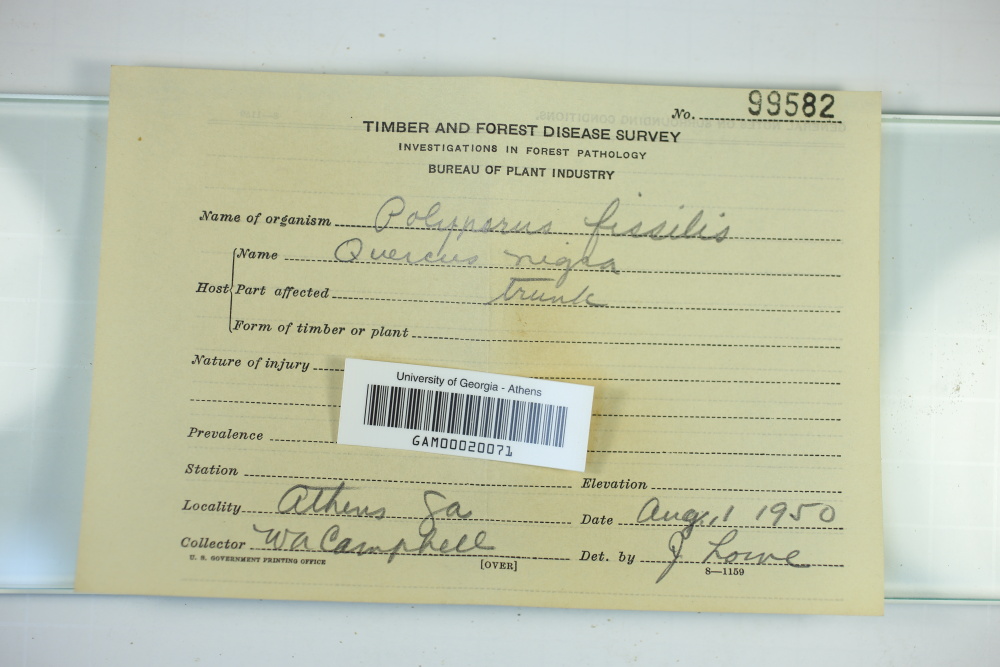 No. 99582
TIMBER AND FOREST DISEASE SURVEY
INVESTIGATIONS IN FOREST PATHOLOGY
BUREAU OF PLANT INDUSTRY
Name of organism Polyporus fissilis
Host Name Quercus nigra
Part affected trunk
Form of timber or plant
Nature of injury
University of Georgia - Athens
GAM00020071
Prevalence
Station Elevation
Locality Athens Ga Date Aug, 1 1950
Collector WA Campbell Det. by J Lowe
U. S. GOVERNMENT PRINTING OFFICE [OVER] 8—1159